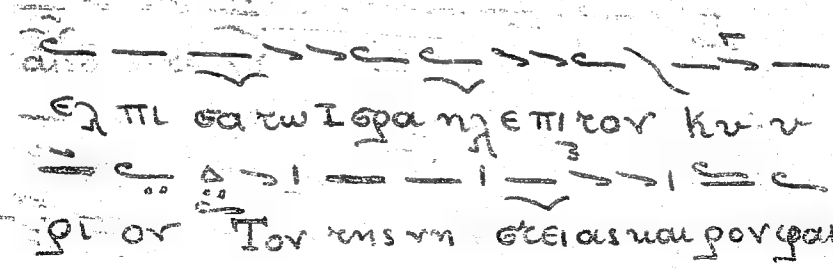 ελ πι σα τω Ισρα ηλ επι τον Κυ υ
ρι ον Τον της νη στειας και ρον φαι